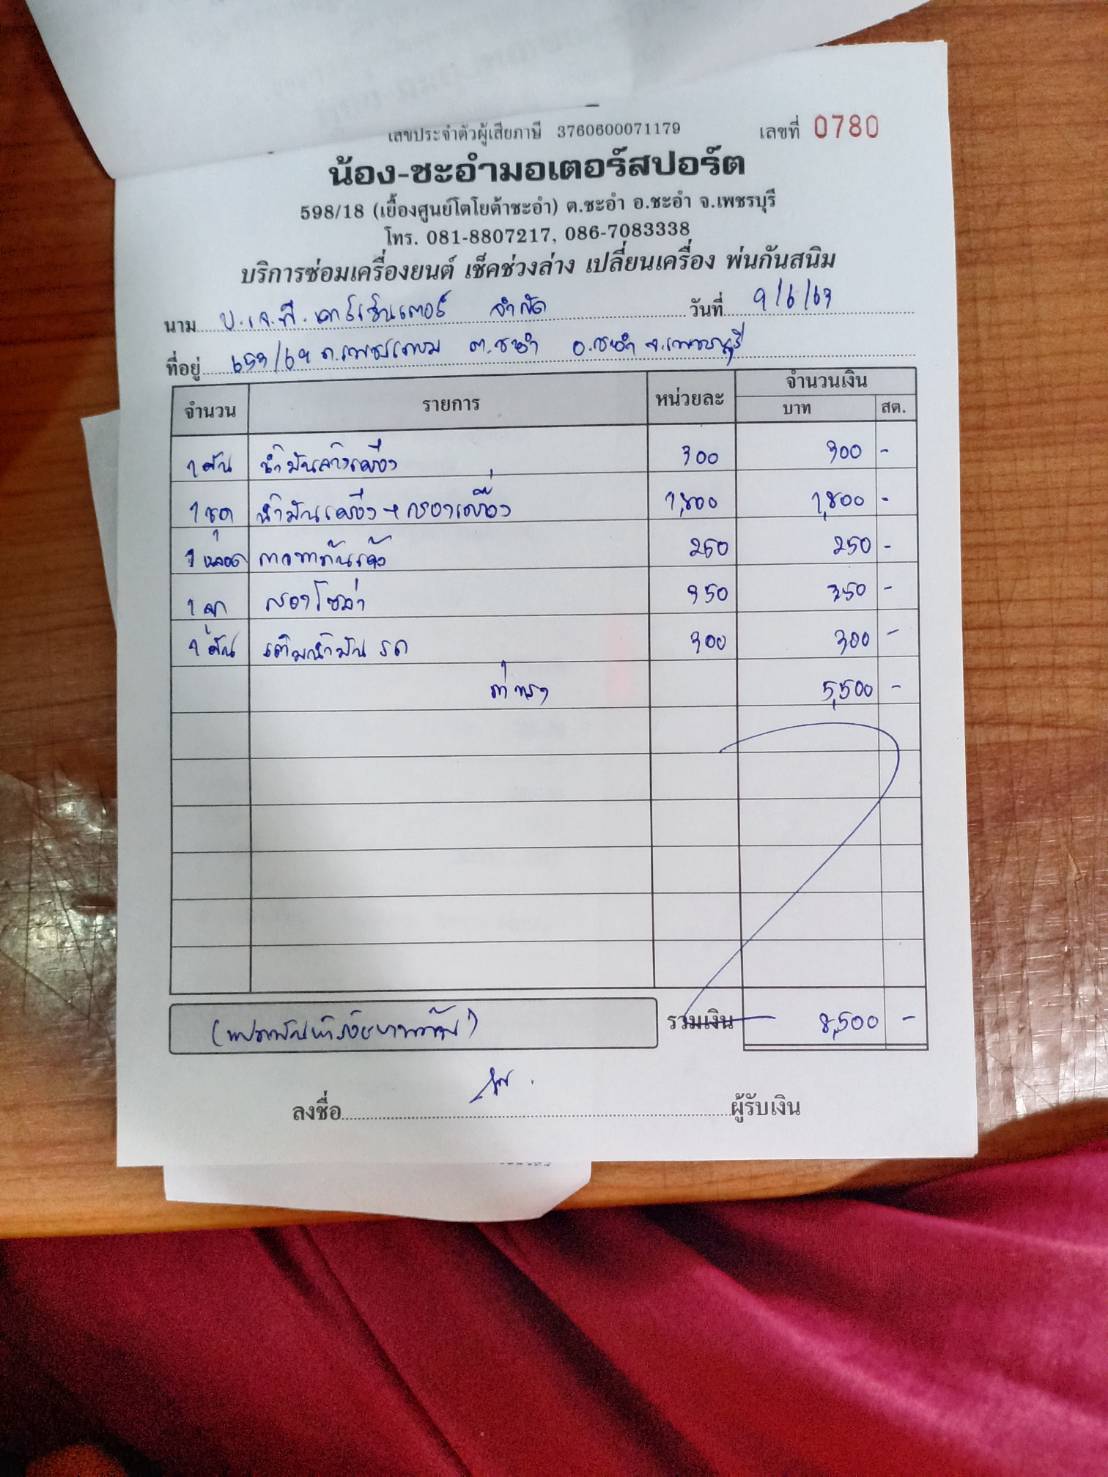 เลขประจำตัวผู้เสียภาษี 3760600071179 เลขที่ 0780
น้อง-ชะอำมอเตอร์สปอร์ต
598/18 (เยื้องศูนย์โตโยต้าชะอำ) ต.ชะอำ อ.ชะอำ จ.เพชรบุรี
โทร. 081-8807217, 086-7083338
บริการซ่อมเครื่องยนต์ เช็คช่วงล่าง เปลี่ยนเครื่อง พ่นกันสนิม
นาม บ.เจ.ที.คาร์เซ็นเตอร์ จำกัด วันที่ 9/6/63
ที่อยู่ ถ.เพชรเกษม ต.ชะอำ อ.ชะอำ จ.เพชรบุรี
จำนวน รายการ หน่วยละ จำนวนเงิน
บาท สต.
น้ำมันล้างเครื่อง 300 300 -
1 ชุด น้ำมันเครื่อง + กรองเครื่อง 1,800 1,800 -
1 หลอด กาวทากันรั่ว 250 250 -
1 ลูก กรองโซล่า 350 350 -
เติมน้ำมัน รถ 300 300 -
ค่าแรง 5,500 -
รวมเงิน 8,500 -
(แปดพันห้าร้อยบาทถ้วน)
ลงชื่อ ผู้รับเงิน